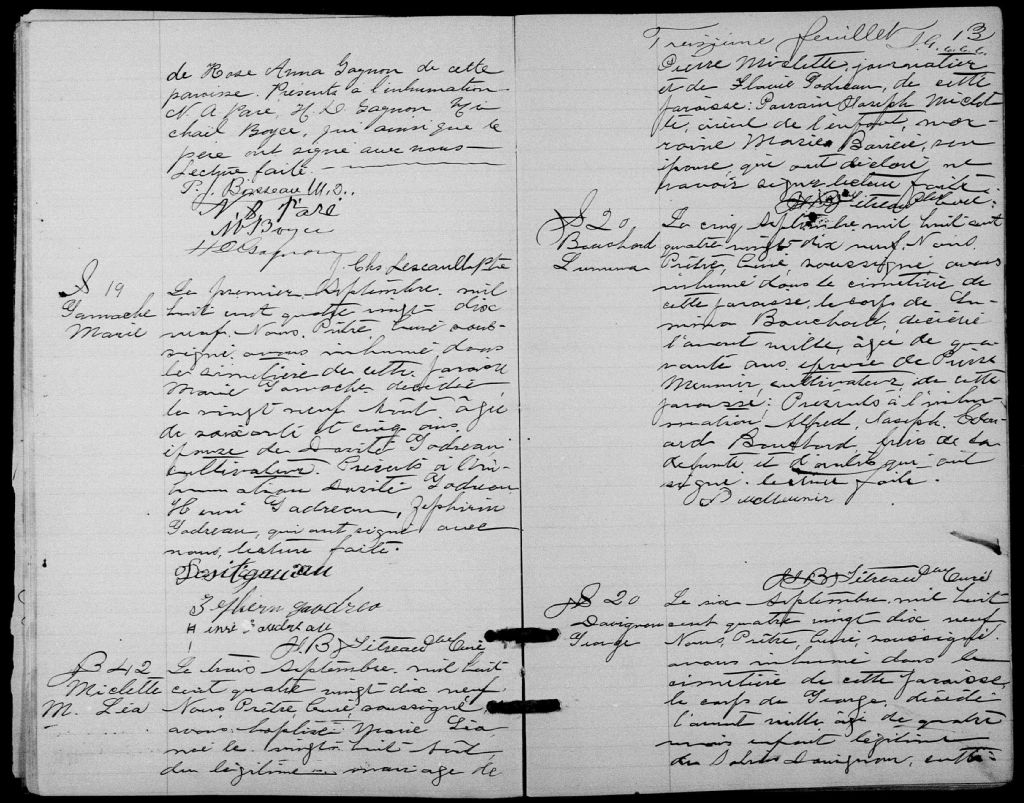 de Rose Anna Gagnon de cette
paroisse. Présents à l'inhumation
N. A Paré, H. D Gagnon Mi-
chail Boyce, qui ainsi que le
père ont signé avec nous
Lecture faite.
P. J. Bisseau M.D.
N. A. Paré
M Boyce
H D Gagnon
J. Chs Lescault Ptre
S 19
Gamache
Marie
Le premier Septembre mil
huit cent quatre vingt dix
neuf. Nous, Prêtre Curé sous-
signé, avons inhumé dans
le cimetière de cette paroisse
Marie Gamache décédée
le vingt neuf Août âgée
de soixante et cinq ans,
épouse de Dosité Godreau,
cultivateur. Présents à l'in-
humation Dosité Godreau
Henri Godreau, Zephirin
Godreau, qui ont signé avec
nous, lecture faite.
Zephern goodreo
Henri
H. B. Titreau Ptre Curé
B 42
Miclette
M. Léa
Le trois Septembre mil huit
cent quatre vingt dix neuf
Nous Prêtre Curé, soussigné
avons baptisé Marie Léa,
née le vingt huit Août
du légitime mariage de
Treizième feuillet 13
Pierre Miclette, journalier
et de Flavie Godreau, de cette
paroisse: Parrain Joseph Miclet-
te, aieul de l'enfant, mar-
raine Marie, son
épouse, qui ont déclaré ne
savoir signer lecture faite.
H. B. Titreau Ptre Curé
S 20
Bouchard
Lumina
Le cinq Septembre mil huit cent
quatre vingt dix neuf, Nous,
Prêtre, Curé, soussigné avons
inhumé dans le cimetière de
cette paroisse, le corps de Lu-
mina Bouchard, décédée
l'avant veille, âgée de qua-
rante ans épouse de Pierre
Meunier, cultivateur, de cette
paroisse: Présents à l'inhu-
mation, Alfred, Joseph, Edou-
ard Bouchard frère de la
défunte et d'autres qui ont
signé. lecture faite.
Meunier
H. B. Titreau Ptre Curé
S 20
Davignon
George
Le six Septembre mil huit
cent quatre vingt dix neuf
Nous, Prêtre, Curé, soussigné,
avons inhumé dans le
cimetière de cette paroisse,
le corps de George, décédé
l'avant veille âgé de quatre
mois enfant légitime
de Davignon, culti-